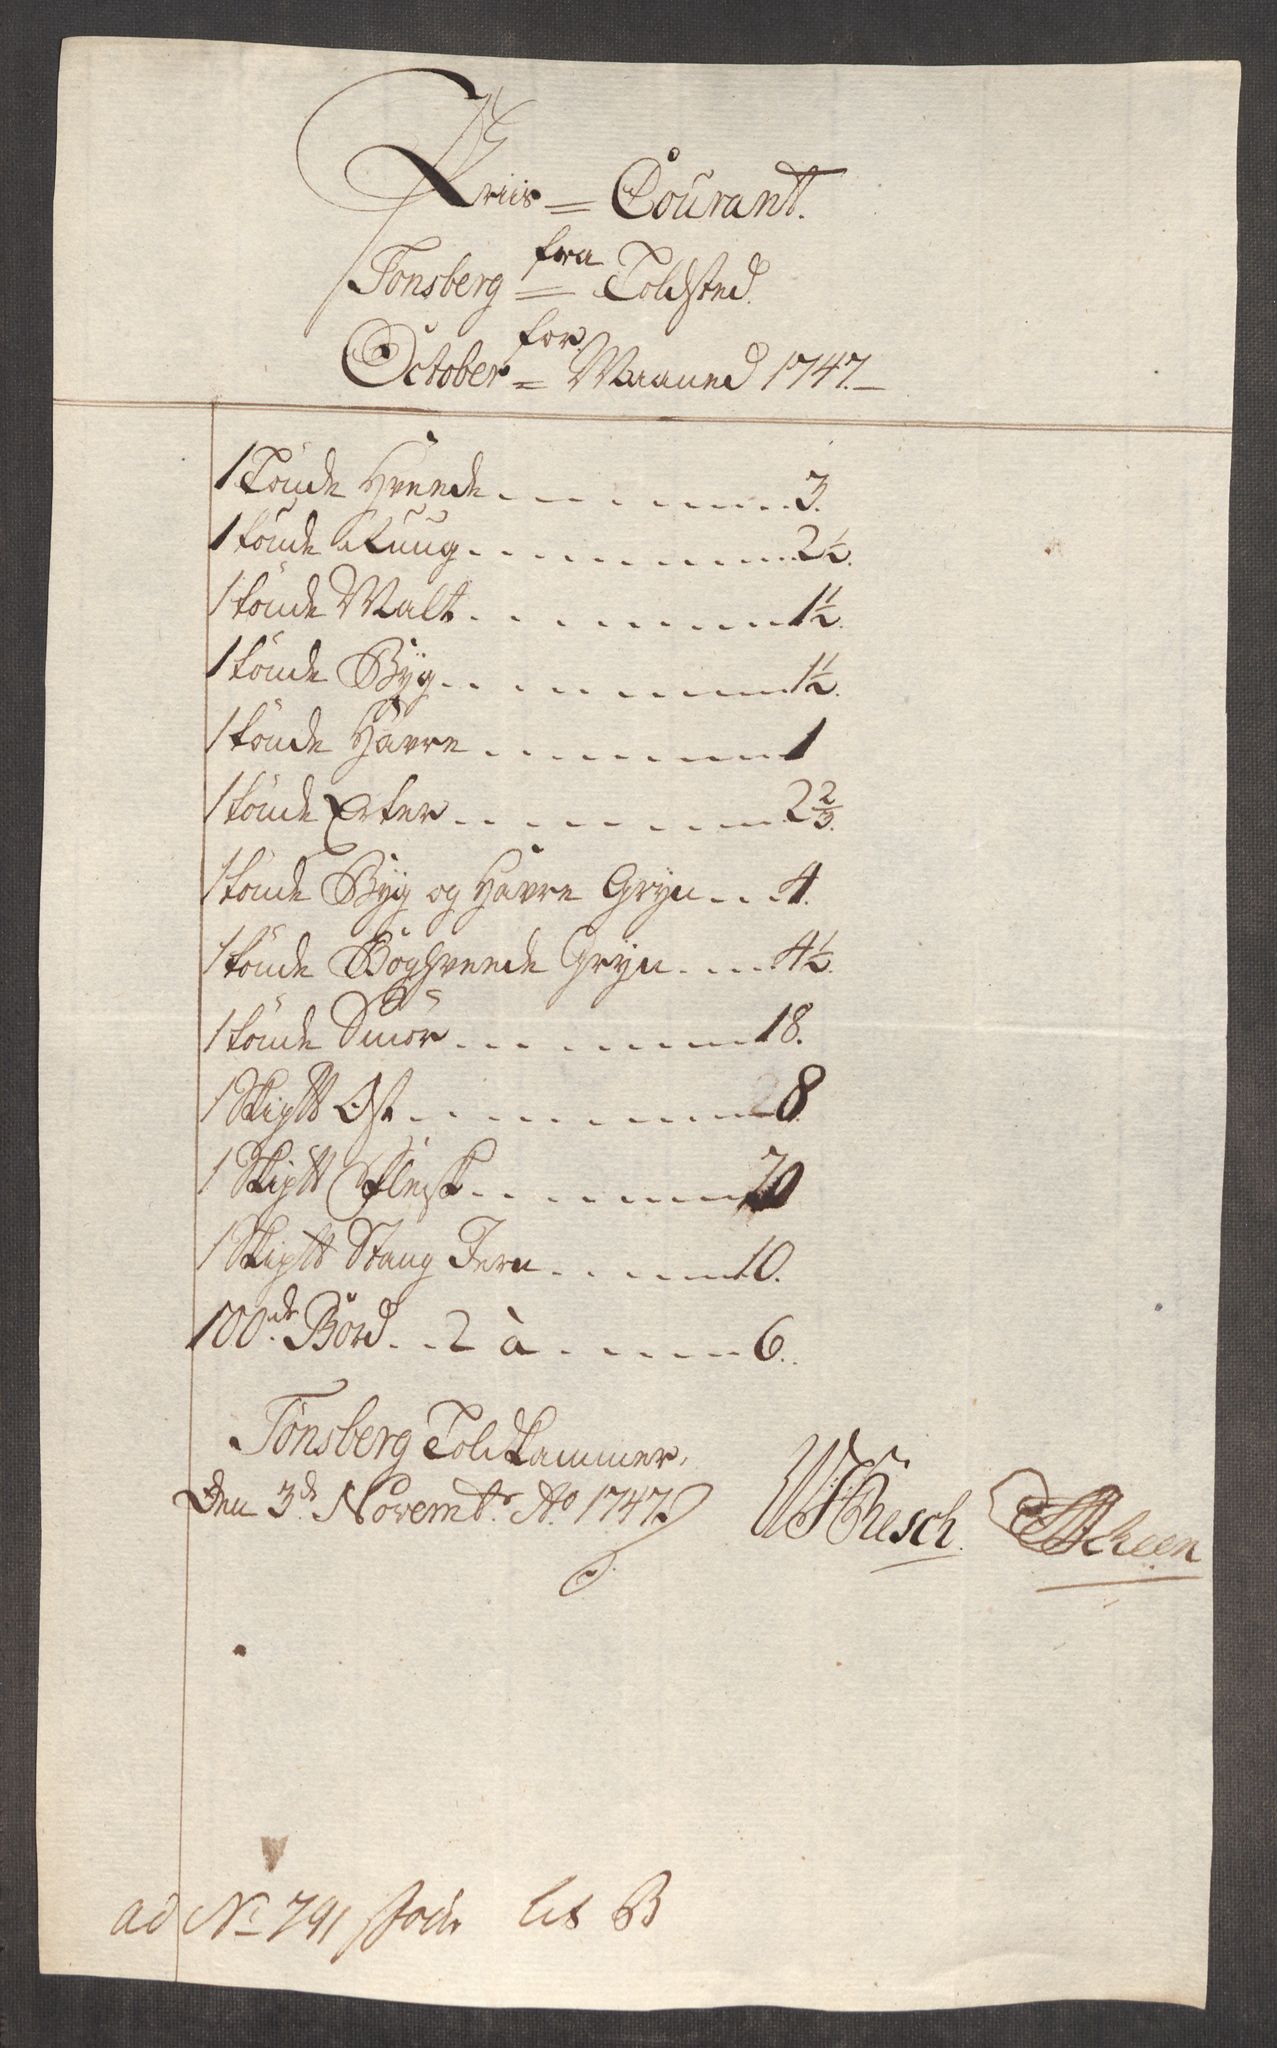 Priis = Courant.
fra
Tonsberg = Toldsted.
for
October = Maaned 1747.
1 Tönde Hveede 3.
1 tönde Ruug 2½.
1 tönde Malt 1½.
1 tönde Byg 1½.
1 tönde Havre 1
1 tönde Erter 2 2/3.
1 tönde Byg og Havre Gryn 4.
1 tönde Boghveede Gryn 4½.
1 tönde Smör 18.
1 Skiptt Ost 8.
1 Skiptt Flesk 20
1 Skiptt Stang Jern 10.
100de Bord 2 à 6.
Tönsberg Toldkammer,
Den 3de Novembr Ao 1747.
Resch. Skeen
ad No 791 Lit B